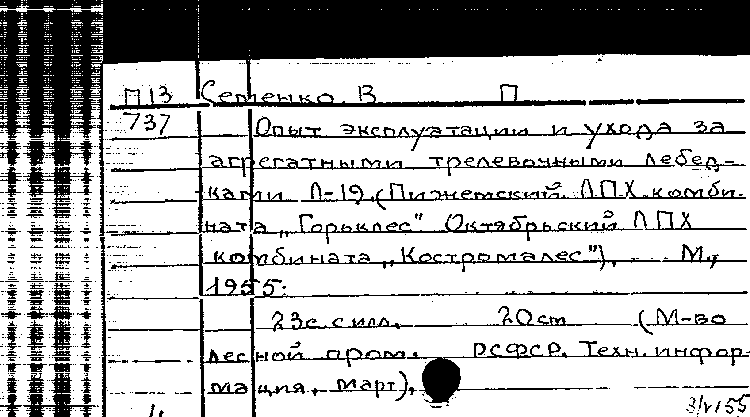 П13 Семенко, В П
737 Опыт эксплуатации и ухода за
агрегатными трелевочными лебед-
ками Л-19. (Пижемский ЛПХ комби-
ната „Горьклес" Октябрьский ЛПХ
комбината „Костромалес"). М.,
1955.
23с. с илл. 20 cm (М-во
лесной пром. РСФСР. Техн. инфор-
мация, март).
3/V 55